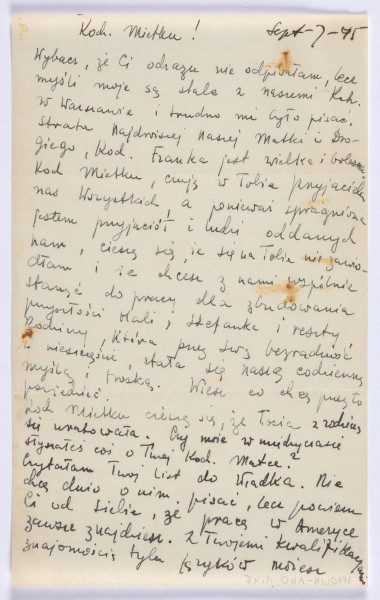 Koch. Mietku! Sept-7-45
Wybacz, że Ci odrazu nie odpisałam, lecz
myśli moje są stale z naszemi Koch.
w Warszawie i trudno mi było pisać.
Strata Najdroższej Naszej Matki i Dro-
giego, Koch. Franka jest wielka i bolesna.
Koch Mietku, czuję w Tobie przyjaciela
nas Wszystkich, a ponieważ spragniona
jestem przyjaciół i ludzi oddanych
nam, cieszę się, że się na Tobie nie zawio-
dłam i że chcesz z nami wspólnie
stanąć do pracy dla zbudowania
przyszłości Hali, Stefanka i reszty
Rodziny, która przez swą bezradność
i nieszczęście, stała się naszą codzienną
myślą i troską. Wiesz co chcę przez to
powiedzieć.
Koch Mietku cieszę się, że z rodziną
się uratowała. Czy może w międzyczasie
słyszałeś coś o Twej Koch. Matce?
Czytałam Twój list do Władka. Nie
chcę dużo o nim pisać, lecz powiem
Ci od siebie, że pracę w Ameryce
zawsze znajdziesz. Z Twojemi kwalifikacjami
znajomością tylu języków możesz